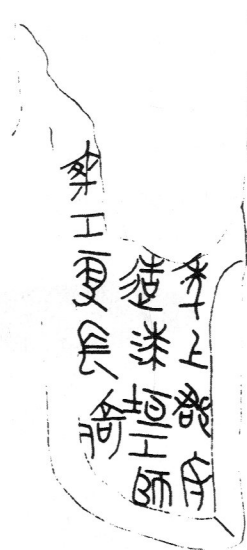 年上郡守
造漆垣工師
乘工更長猗